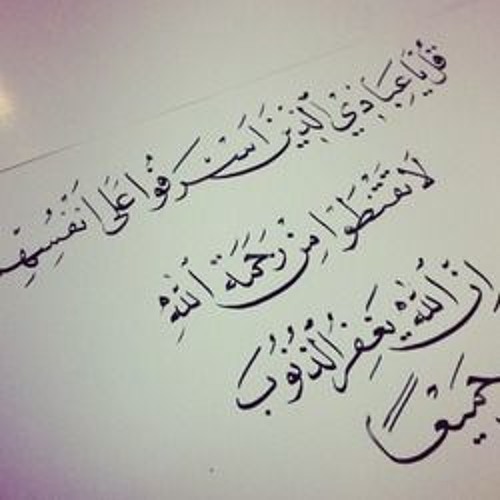 قُلْ يَا عِبَادِيَ الَّذِينَ أَسْرَفُوا عَلَى أَنْفُسِهِمْ
لَا تَقْنَطُوا مِنْ رَحْمَةِ اللَّهِ
إِنَّ اللَّهَ يَغْفِرُ الذُّنُوبَ
جَمِيعًا